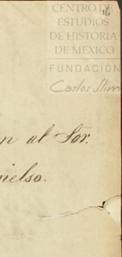 CENTRO DE
ESTUDIOS
DE HISTORIA
DE MEXICO
FUNDACIÓN
Carlos Slim
n al Sor.
nielso.